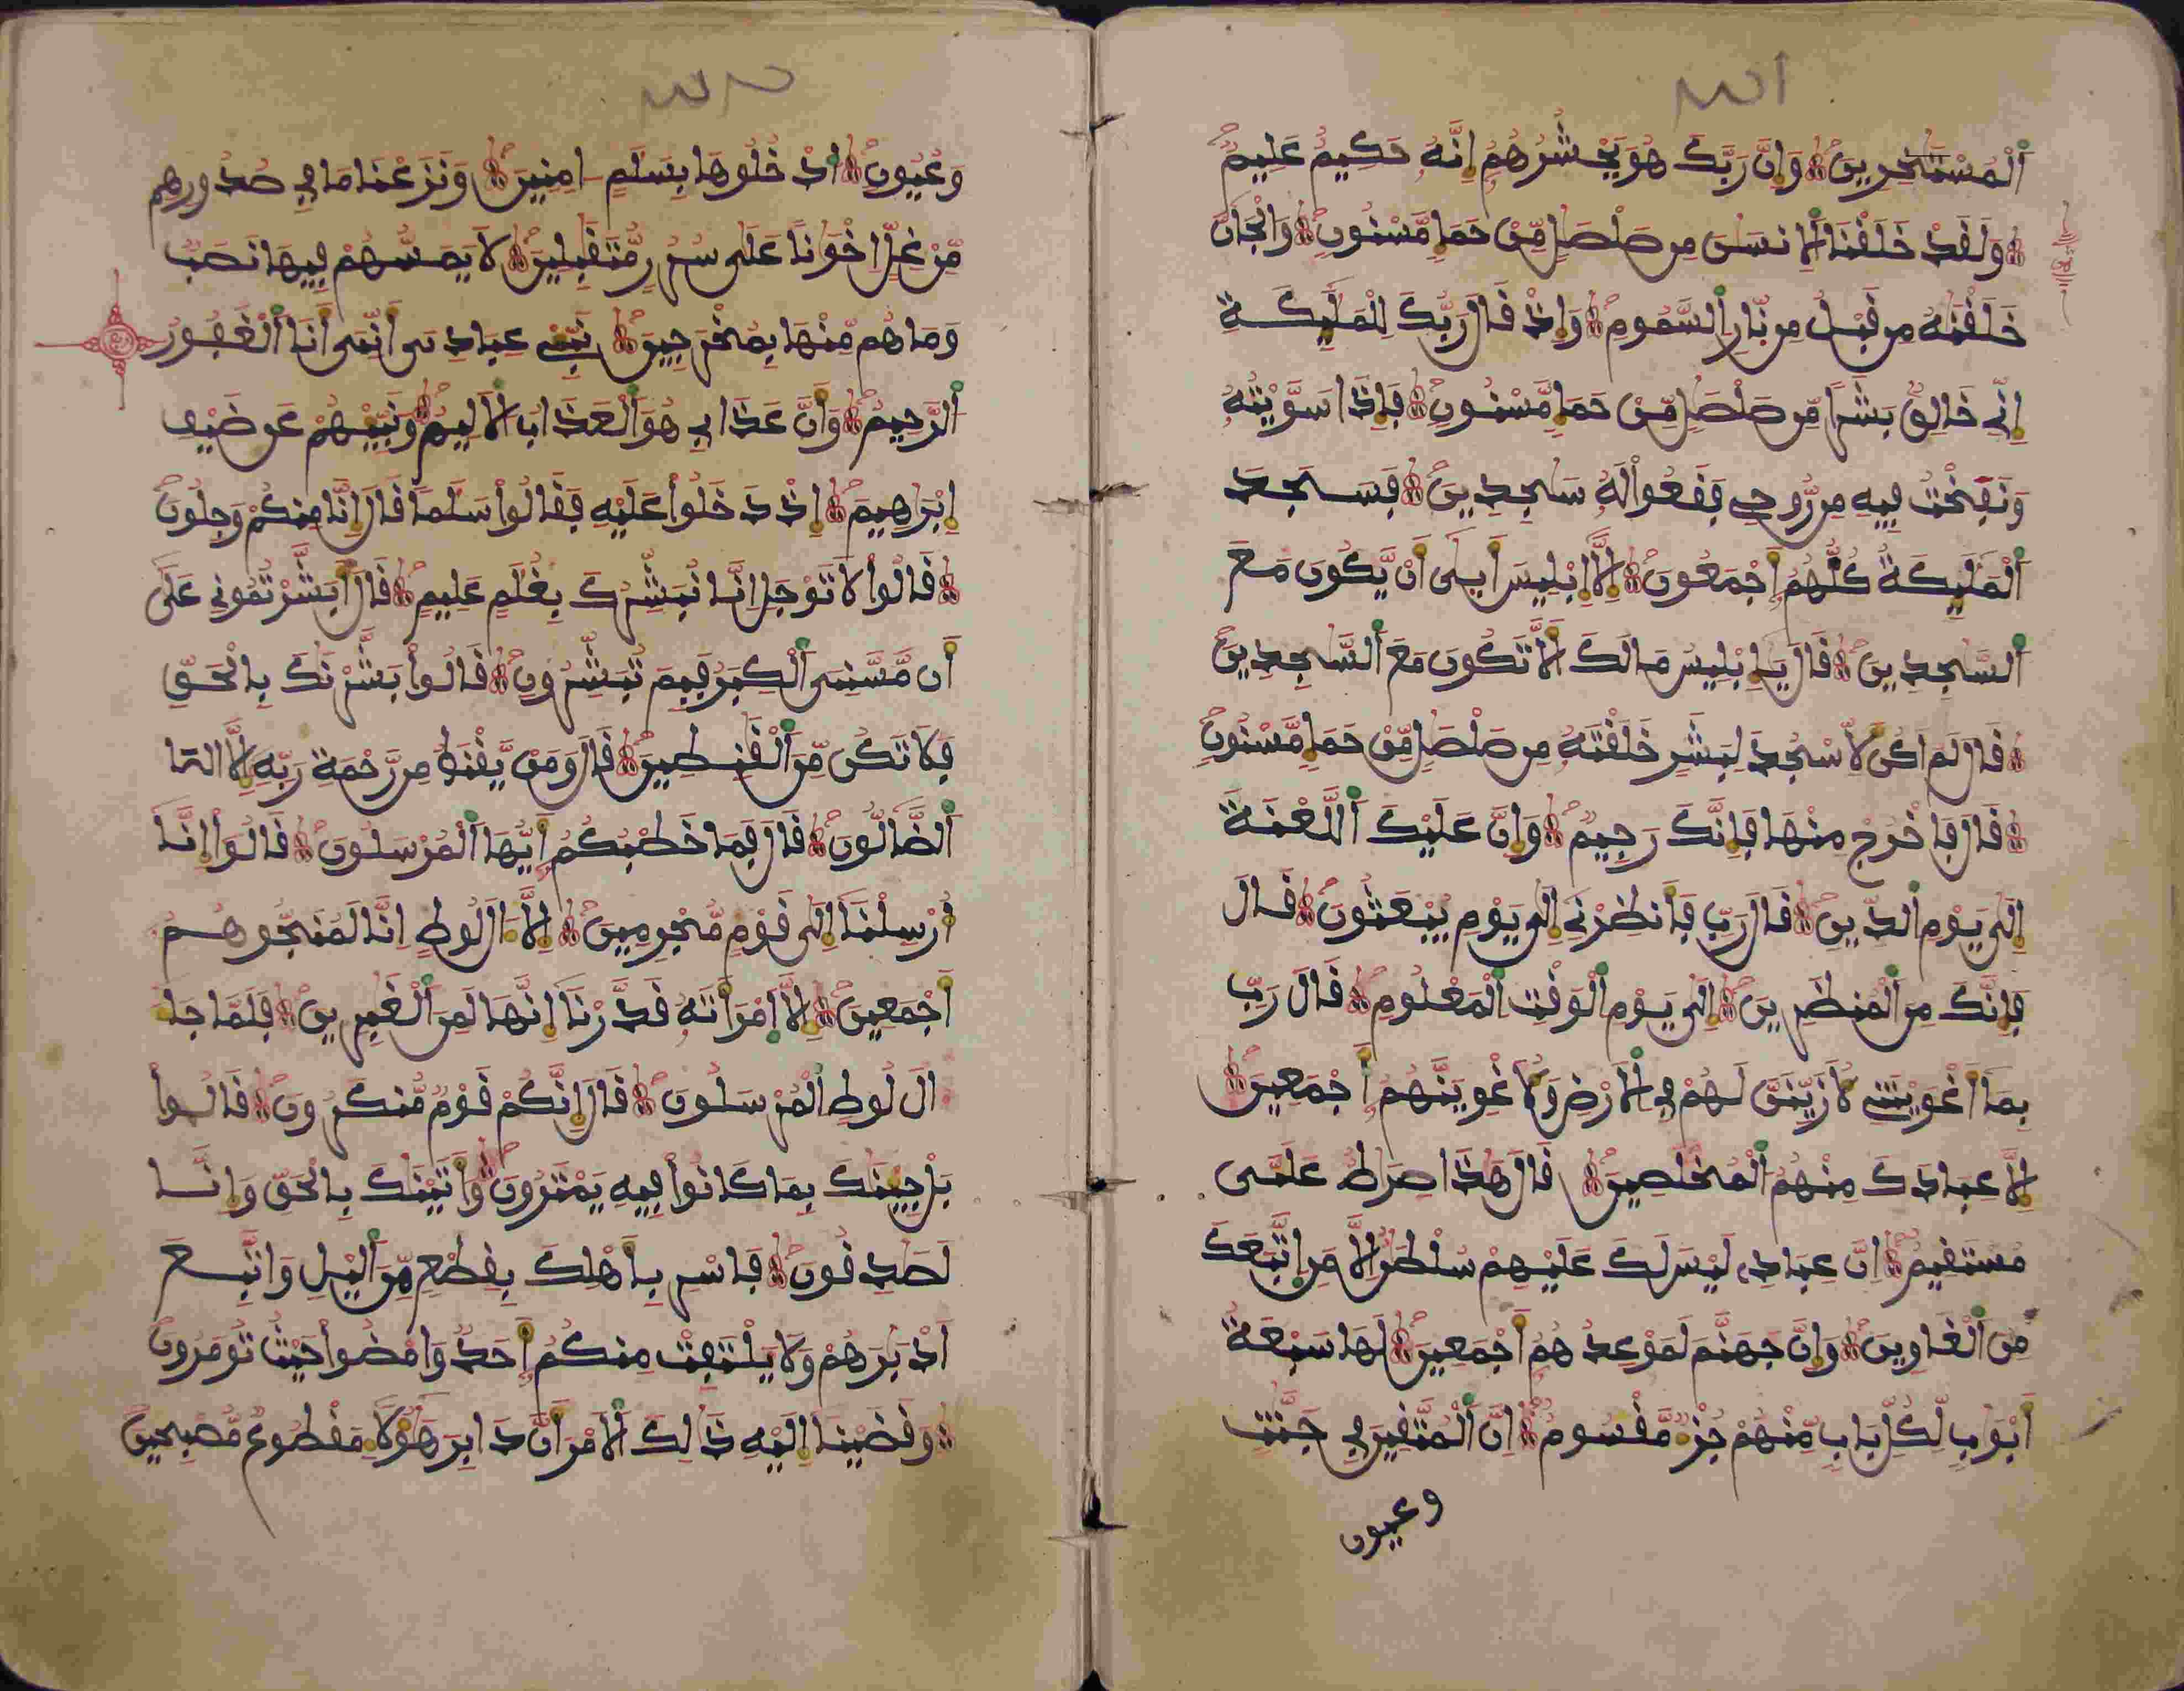 اَ۬لْمُسْتَٰخِرِينَ وَإِنَّ رَبَّكَ هُوَ يَحْشُرُهُمُۥٓ إِنَّهُۥ حَكِيمٌ عَلِيمٌ
وَلَقَدْ خَلَقْنَا اَ۬لِانسَٰنَ مِن صَلْصَٰلٖ مِّنْ حَمَإٖ مَّسْنُونٖ وَالْجَآنَّ
خَلَقْنَٰهُ مِن قَبْلُ مِن نّ۪ارِ اِ۬لسَّمُومِ وَإِذْ قَالَ رَبُّكَ لِلْمَلَٰٓئِكَةِ
إِنِّے خَٰلِقٌ بَشَراٗ مِّن صَلْصَٰلٖ مِّنْ حَمَإٖ مَّسْنُونٖ فَإِذَا سَوَّيْتُهُۥ
وَنَفَخْتُ فِيهِ مِن رُّوحِے فَقَعُواْ لَهُۥ سَٰجِدِينَ فَسَجَدَ
اَ۬لْمَلَٰٓئِكَةُ كُلُّهُمُۥٓ أَجْمَعُونَ إِلَّآ إِبْلِيسَ أَب۪ىٰٓ أَنْ يَّكُونَ مَعَ
اَ۬لسَّٰجِدِينَ قَالَ يَٰٓإِبْلِيسُ مَا لَكَ أَلَّا تَكُونَ مَعَ اَ۬لسَّٰجِدِينَ
قَالَ لَمَ اَكُن لِّأَسْجُدَ لِبَشَرٍ خَلَقْتَهُۥ مِن صَلْصَٰلٖ مِّنْ حَمَإٖ مَّسْنُونٖ
قَالَ فَاخْرُجْ مِنْهَا فَإِنَّكَ رَجِيمٌ وَإِنَّ عَلَيْكَ اَ۬للَّعْنَةَ
إِلَىٰ يَوْمِ اِ۬لدِّينِ قَالَ رَبِّ فَأَنظِرْنِےٓ إِلَىٰ يَوْمِ يُبْعَثُونَ قَالَ
فَإِنَّكَ مِنَ اَ۬لْمُنظَرِينَ إِلَىٰ يَوْمِ اِ۬لْوَقْتِ اِ۬لْمَعْلُومِ قَالَ رَبِّ
بِمَآ أَغْوَيْتَنِے لَأُزَيِّنَنَّ لَهُمْ فِے اِ۬لَارْضِ وَلَأُغْوِيَنَّهُمُۥٓ أَجْمَعِينَ
إِلَّا عِبَادَكَ مِنْهُمُ اُ۬لْمُخْلَصِينَ قَالَ هَٰذَا صِرَٰطٌ عَلَىَّ
مُسْتَقِيمٌ إِنَّ عِبَادِے لَيْسَ لَكَ عَلَيْهِمْ سُلْطَٰنٌ إِلَّا مَنِ اِ۪تَّبَعَكَ
مِنَ اَ۬لْغَاوِينَ وَإِنَّ جَهَنَّمَ لَمَوْعِدُهُمُۥٓ أَجْمَعِينَ لَهَا سَبْعَةُ
أَبْوَٰبٖ لِّكُلِّ بَابٖ مِّنْهُمْ جُزْءٞ مَّقْسُومٌ إِنَّ اَ۬لْمُتَّقِينَ فِے جَنَّٰتٖ
وعيون
وَعُيُونٍ اُ۟دْخُلُوهَا بِسَلَٰمٍ اٰمِنِينَ وَنَزَعْنَا مَا فِے صُدُورِهِم
مِّنْ غِلٍّ اِخْوَٰناً عَلَىٰ سُرُرٖ مُّتَقَٰبِلِينَ لَا يَمَسُّهُمْ فِيهَا نَصَبٞ
وَمَا هُم مِّنْهَا بِمُخْرَجِينَ نَبِّۓْ عِبَادِيَ أَنِّيَ أَنَا اَ۬لْغَفُورُ
اُ۬لرَّحِيمُ وَأَنَّ عَذَابِے هُوَ اَ۬لْعَذَابُ اُ۬لَالِيمُ وَنَبِّئْهُمْ عَن ضَيْفِ
إِبْرَٰهِيمَ إِذْ دَخَلُواْ عَلَيْهِ فَقَالُواْ سَلَٰماٗ قَالَ إِنَّا مِنكُمْ وَجِلُونَ
قَالُواْ لَا تَوْجَلِ اِنَّا نُبَشِّرُكَ بِغُلَٰمٍ عَلِيمٖ قَالَ أَبَشَّرْتُمُونِے عَلَىٰٓ
أَن مَّسَّنِيَ اَ۬لْكِبَرُ فَبِمَ تُبَشِّرُونِ قَالُواْ بَشَّرْنَٰكَ بِالْحَقِّ
فَلَا تَكُن مِّنَ اَ۬لْقَٰنِطِينَ قَالَ وَمَنْ يَّقْنَطُ مِن رَّحْمَةِ رَبِّهِۦٓ إِلَّا
اَ۬لضَّآلُّونَ قَالَ فَمَا خَطْبُكُمُۥٓ أَيُّهَا اَ۬لْمُرْسَلُونَ قَالُوٓاْ إِنَّآ
أُرْسِلْنَآ إِلَىٰ قَوْمٖ مُّجْرِمِينَ إِلَّآ ءَالَ لُوطٍ اِنَّا لَمُنَجُّوهُمُۥٓ
أَجْمَعِينَ إِلَّا اَ۪مْرَأَتَهُۥ قَدَّرْنَآ إِنَّهَا لَمِنَ اَ۬لْغَٰبِرِينَ فَلَمَّا جَآءَ
الَ لُوطٍ اِ۬لْمُرْسَلُونَ قَالَ إِنَّكُمْ قَوْمٞ مُّنكَرُونَ قَالُواْ
بَلْ جِئْنَٰكَ بِمَا كَانُواْ فِيهِ يَمْتَرُونَ وَأَتَيْنَٰكَ بِالْحَقِّ وَإِنَّا
لَصَٰدِقُونَ فَاسْرِ بِأَهْلِكَ بِقِطْعٖ مِّنَ اَ۬ليْلِ وَاتَّبِعَ
اَدْبَٰرَهُمْ وَلَا يَلْتَفِتْ مِنكُمُۥٓ أَحَدٞ وَامْضُواْ حَيْثُ تُومَرُونَ
وَقَضَيْنَآ إِلَيْهِ ذَٰلِكَ اَ۬لَامْرَ أَنَّ دَابِرَ هَٰٓؤُلَآءِ مَقْطُوعٞ مُّصْبِحِينَ